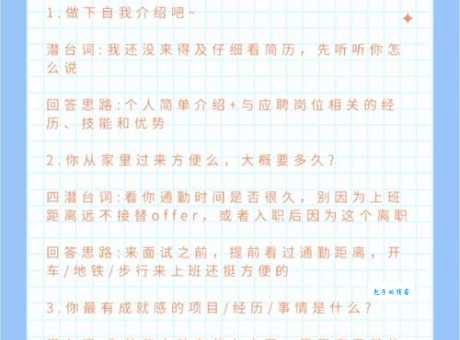 1.做下自我介绍吧~
潜台词:我还没来得及仔细看简历，先听听你怎
么说
回答思路:个人简单介绍+与应聘岗位相关的经
历、技能和优势
2.你从家里过来方便么，大概要多久?
四潜台词:看你通勤时间是否很久，别因为上班
距离远不接替offer，或者入职后因为这个离职
回答思路:来面试之前，提前看过通勤距离，开
车/地铁/步行来上班还挺方便的
包子的博客
3.你最有成就感的项目/经历/事情是什么?